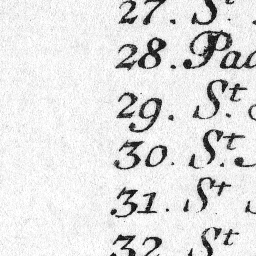 27. St
28. Pad
29. St
30. St
31. St
32. St